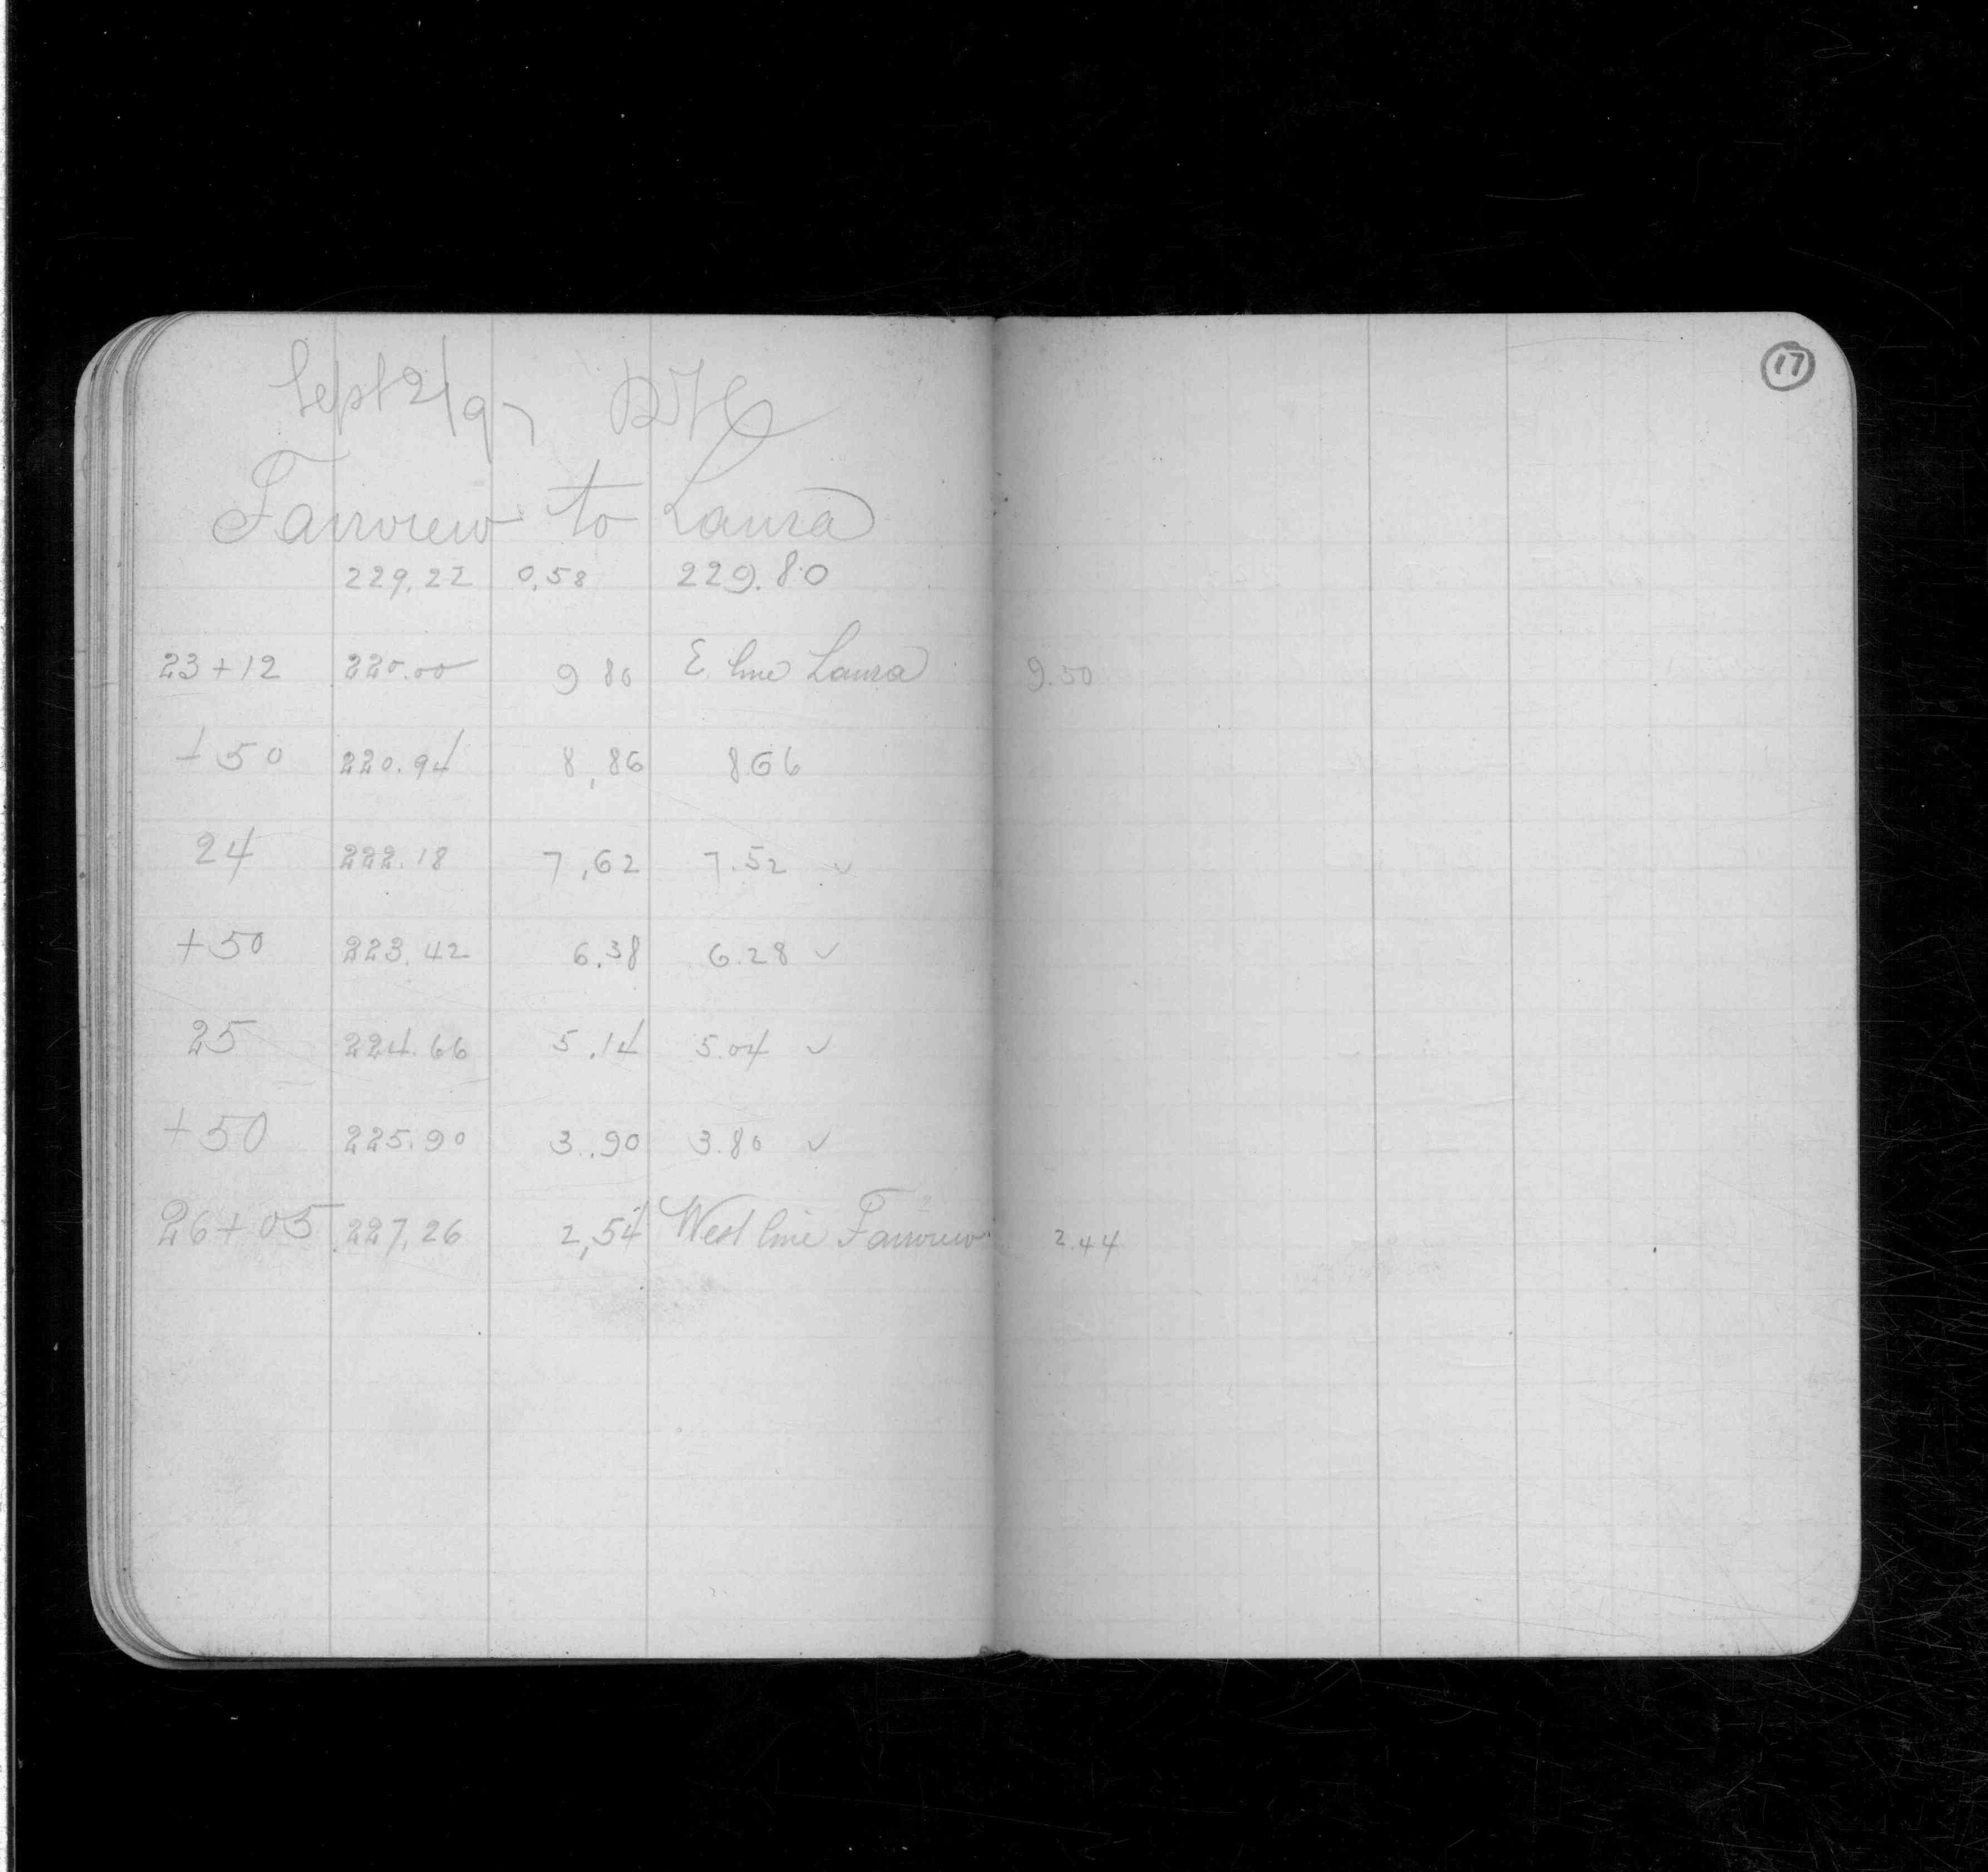 17
Sept 2/97
Fairview to Laura
229.22 0.58 229.80
23+12 220.00 9 80 E. line Laura 9.50
+50 220.94 8,86 8.66
24 222.18 7,62 7.52 ✓
+50 223.42 6.38 6.28 ✓
25 224.66 5.14 5.04 ✓
+50 225.90 3.90 3.80 ✓
26+05 227.26 2,54 West line Fairview 2.44